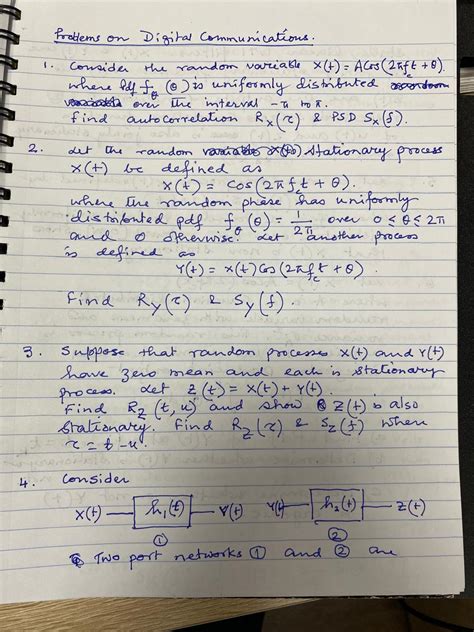 Problems on Digital Communications.
1. Consider the random variable X(t) = A Cos(2πf_c t + θ).
where pdf f_θ(θ) is uniformly distributed
over the interval -π to π.
Find autocorrelation R_X(τ) & PSD S_X(f).
2. Let the random stationary process
X(t) be defined as
X(t) = Cos(2πf_c t + θ).
where the random phase has uniformly
distributed pdf f_θ(θ) = 1/2π over 0 ≤ θ ≤ 2π
and 0 otherwise. Let another process
is defined as
Y(t) = X(t) Cos(2πf_c t + θ)
Find R_Y(τ) & S_Y(f).
3. Suppose that random processes X(t) and Y(t)
have zero mean and each is stationary
process. Let Z(t) = X(t) + Y(t).
Find R_Z(t, u) and show Z(t) is also
stationary. Find R_Z(τ) & S_Z(f) where
τ = t - u.
4. Consider
X(t) — h₁(t) — Y(t) Y(t) — h₂(t) — Z(t)
① ②
Two port networks ① and ② are